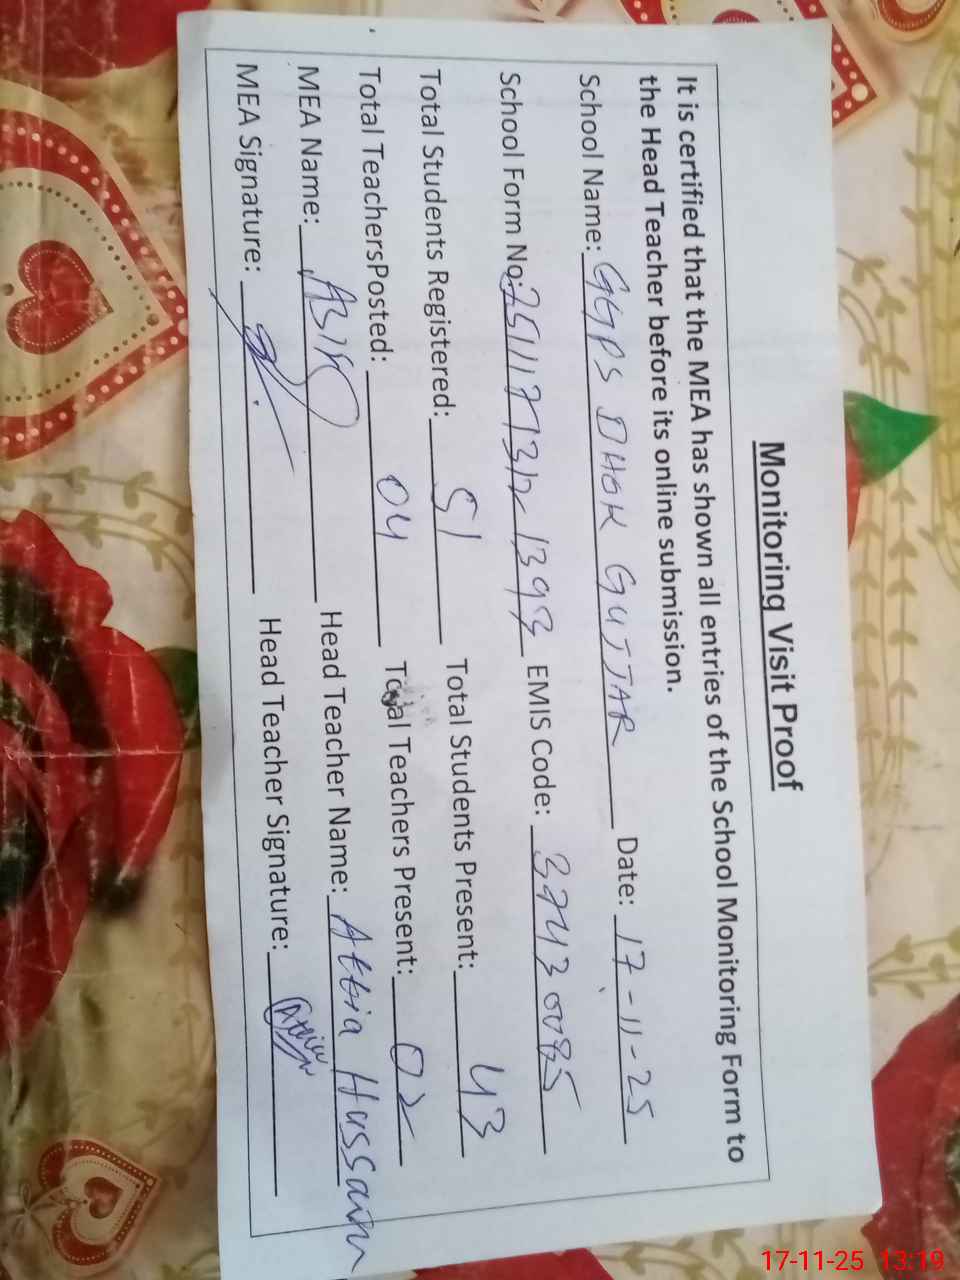 Monitoring Visit Proof
It is certified that the MEA has shown all entries of the School Monitoring Form to
the Head Teacher before its online submission.
School Name: GGPS DHOK GUJJAR Date: 17-11-25
School Form No: 2511173121393 EMIS Code: 37430085
Total Students Registered: 51 Total Students Present: 43
Total TeachersPosted: 04 Total Teachers Present: 02
MEA Name: Head Teacher Name: Attia Hussain
MEA Signature: Head Teacher Signature:
17-11-25 13:19